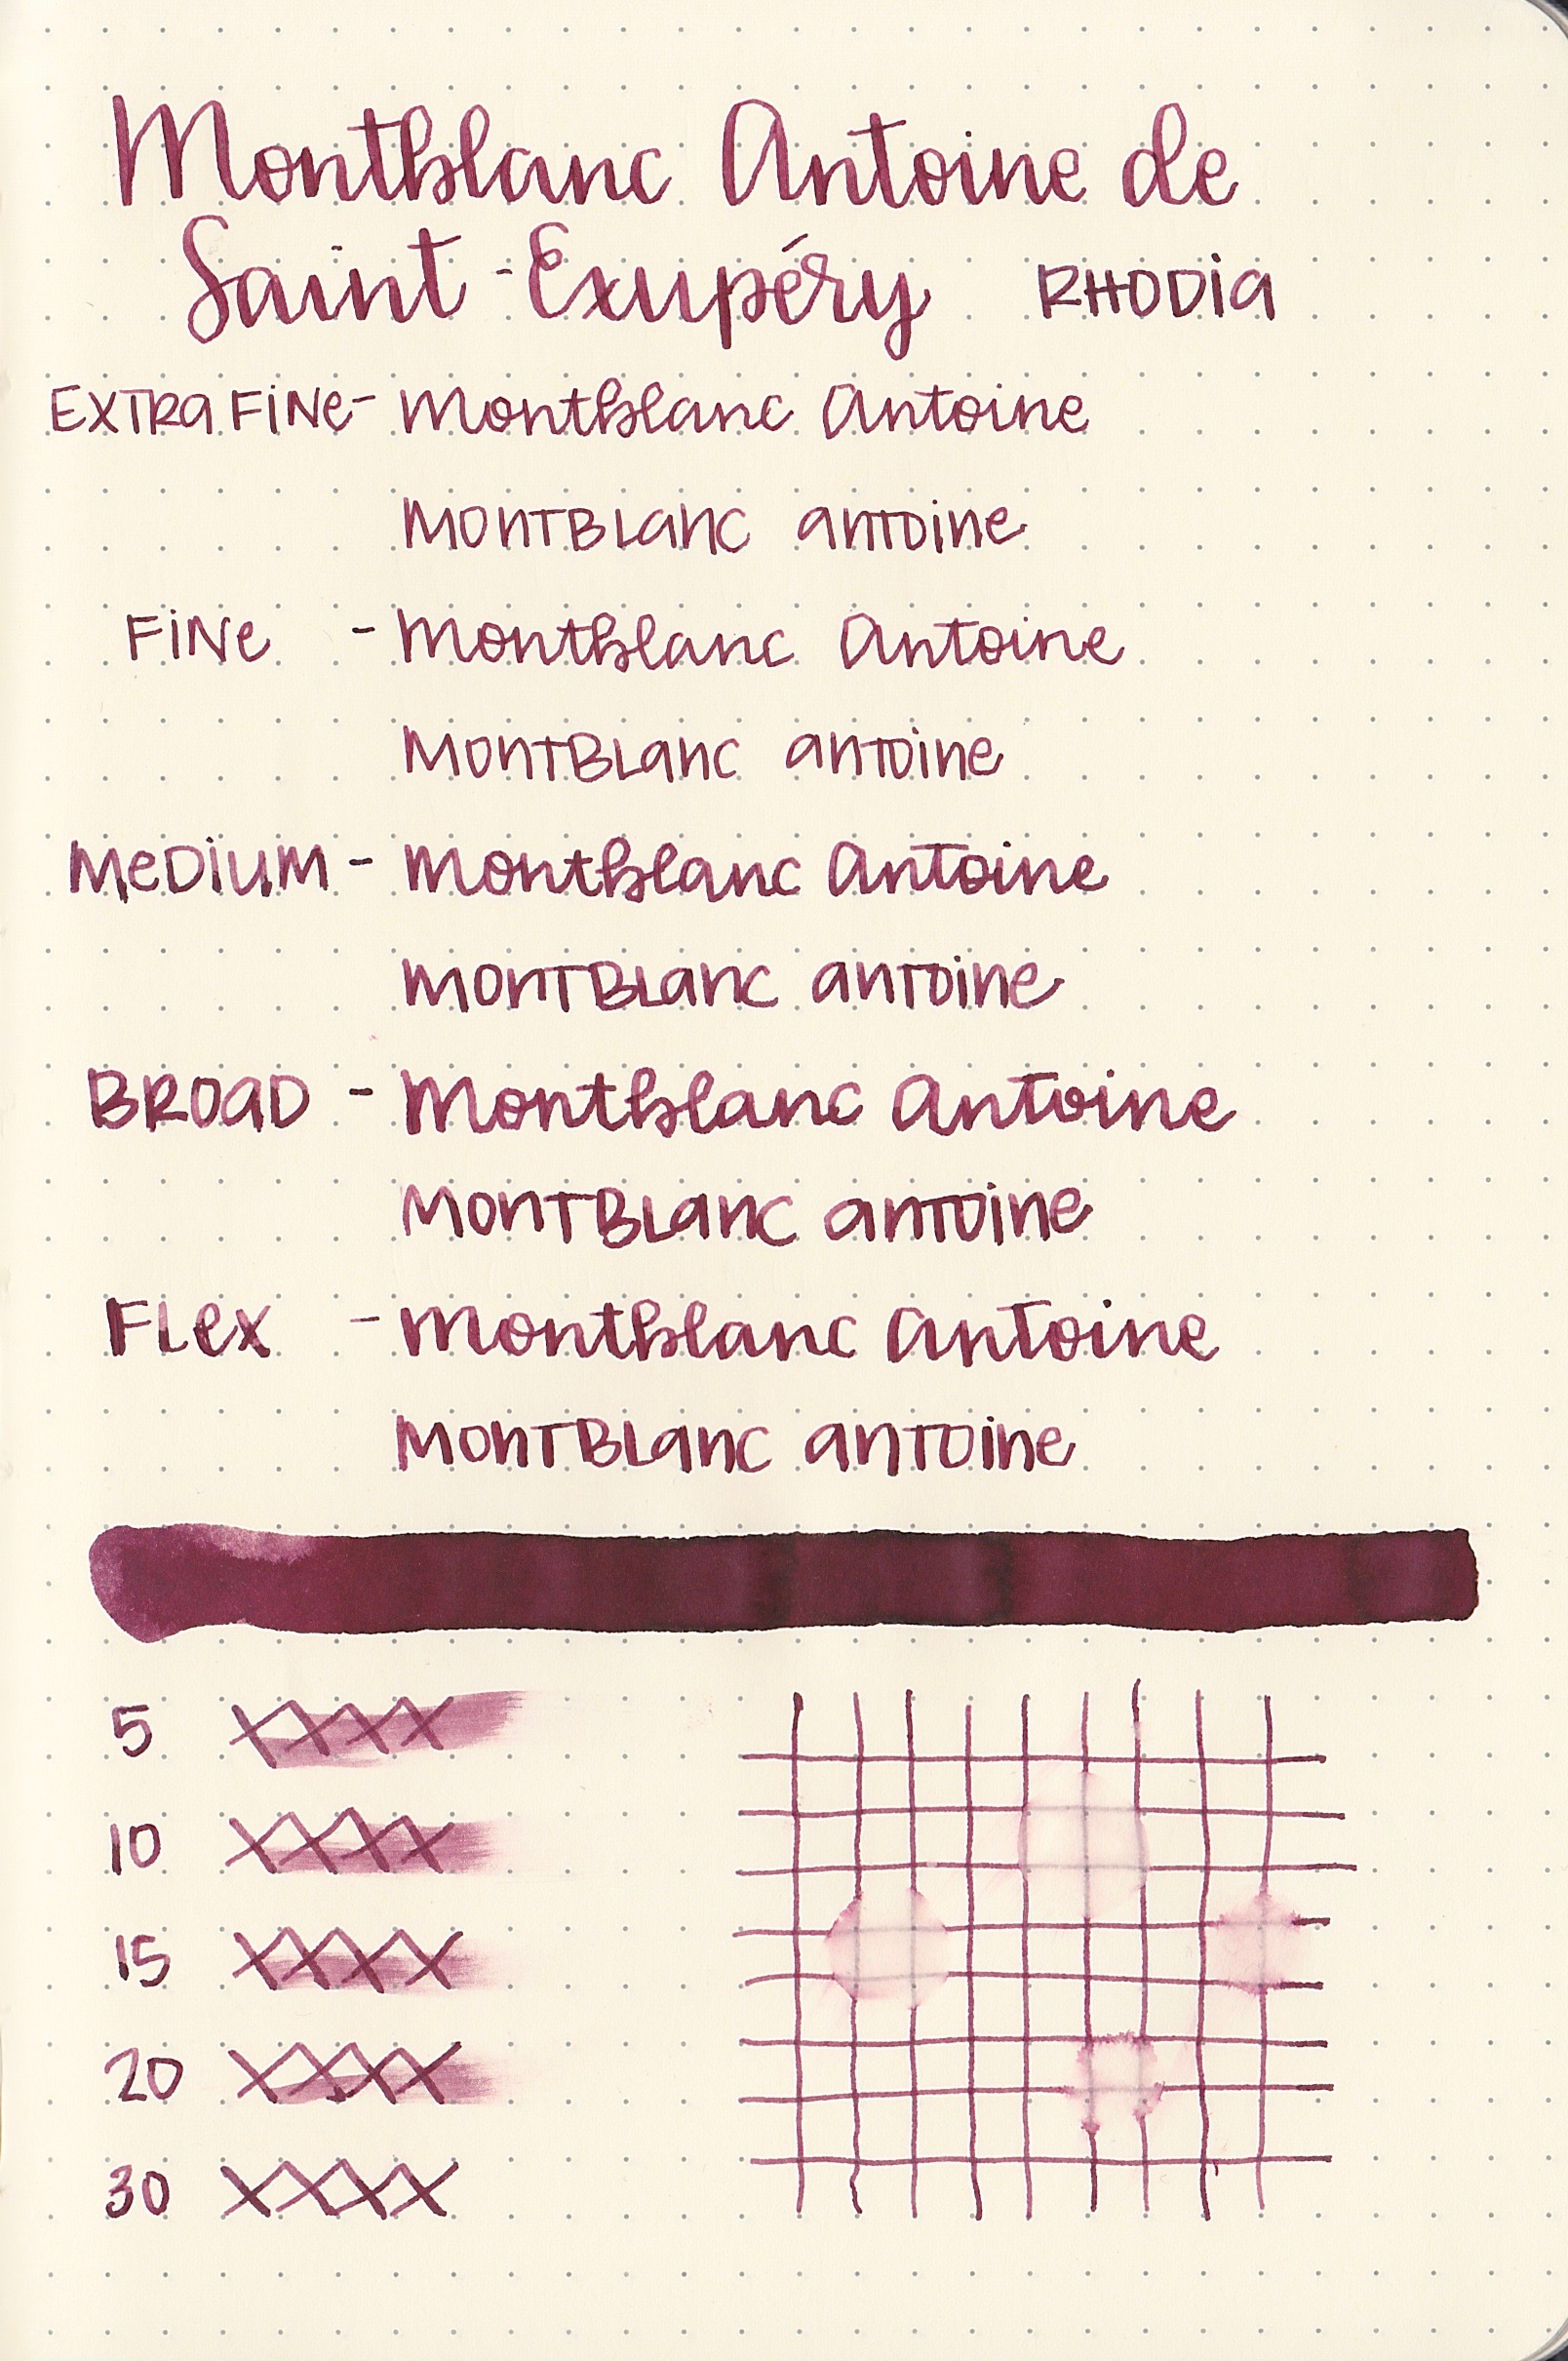 Montblanc Antoine de
Saint-Exupéry RHODIA
EXTRA FINE - Montblanc Antoine
MONTBLANC ANTOINE
FINE - Montblanc Antoine
MONTBLANC ANTOINE
MEDIUM - Montblanc Antoine
MONTBLANC ANTOINE
BROAD - Montblanc Antoine
MONTBLANC ANTOINE
FLEX - Montblanc Antoine
MONTBLANC ANTOINE
5 XXXX
10 XXXX
15 XXXX
20 XXXX
30 XXXX